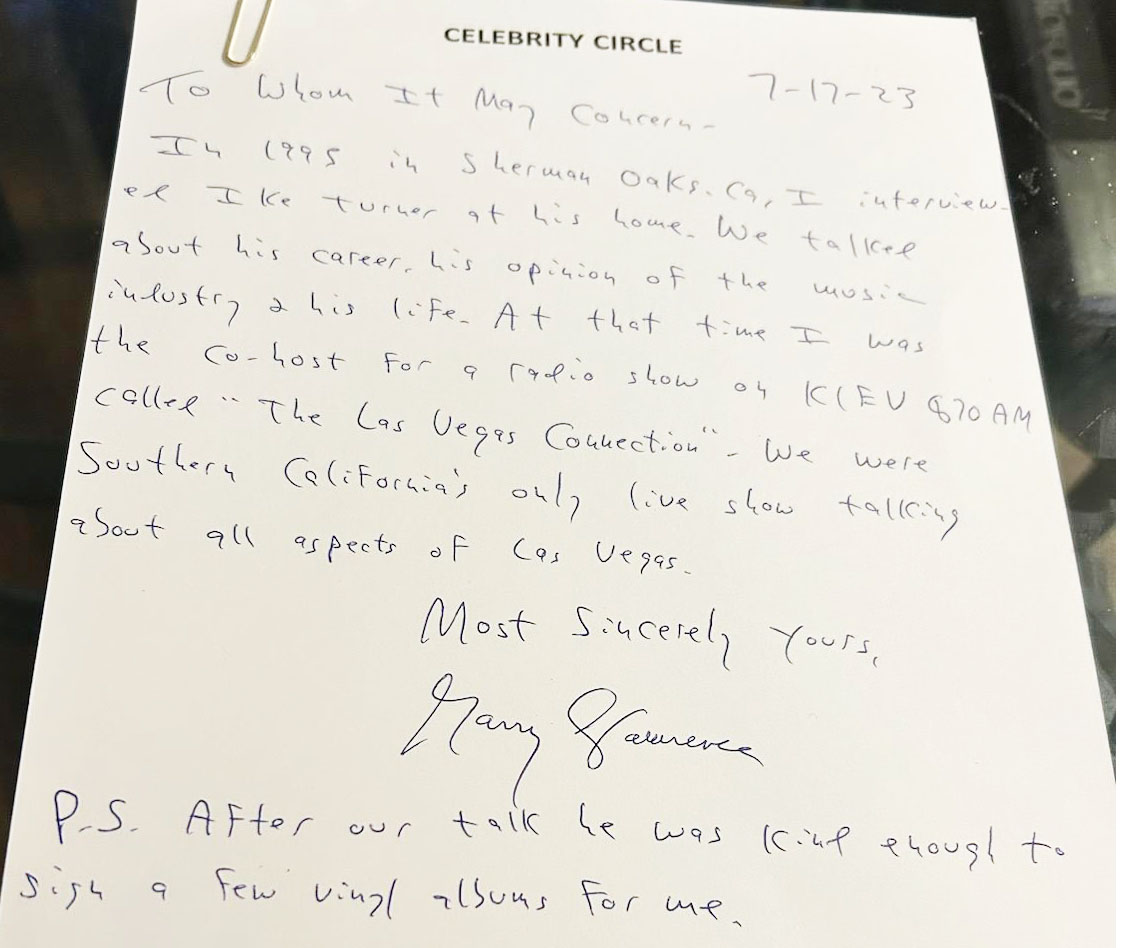 CELEBRITY CIRCLE
7-17-23
To Whom It May Concern-
In 1995 in Sherman Oaks. Ca, I interview-
ed Ike Turner at his home. We talked
about his career, his opinion of the music
industry & his life. At that time I was
the co-host for a radio show on KIEV 870 AM
called "The Las Vegas Connection". We were
Southern California's only live show talking
about all aspects of Las Vegas.
Most Sincerely Yours,
Lawrence
P.S. After our talk he was kind enough to
sign a few vinyl albums for me.